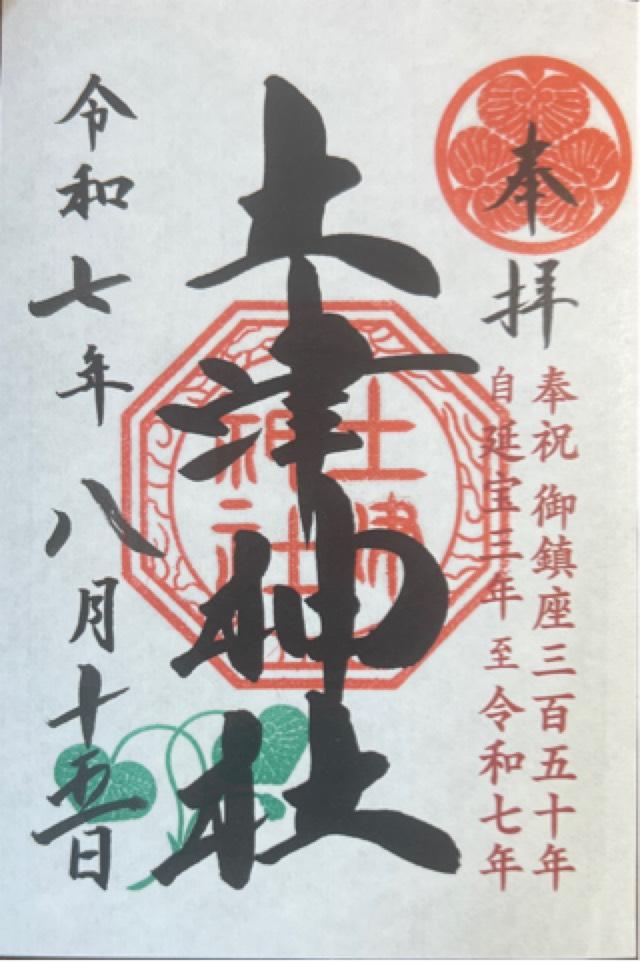 奉拝
奉祝 御鎮座三百五十年
自 延宝三年 至 令和七年
土津神社
土津
神社
令和七年 八月十五日